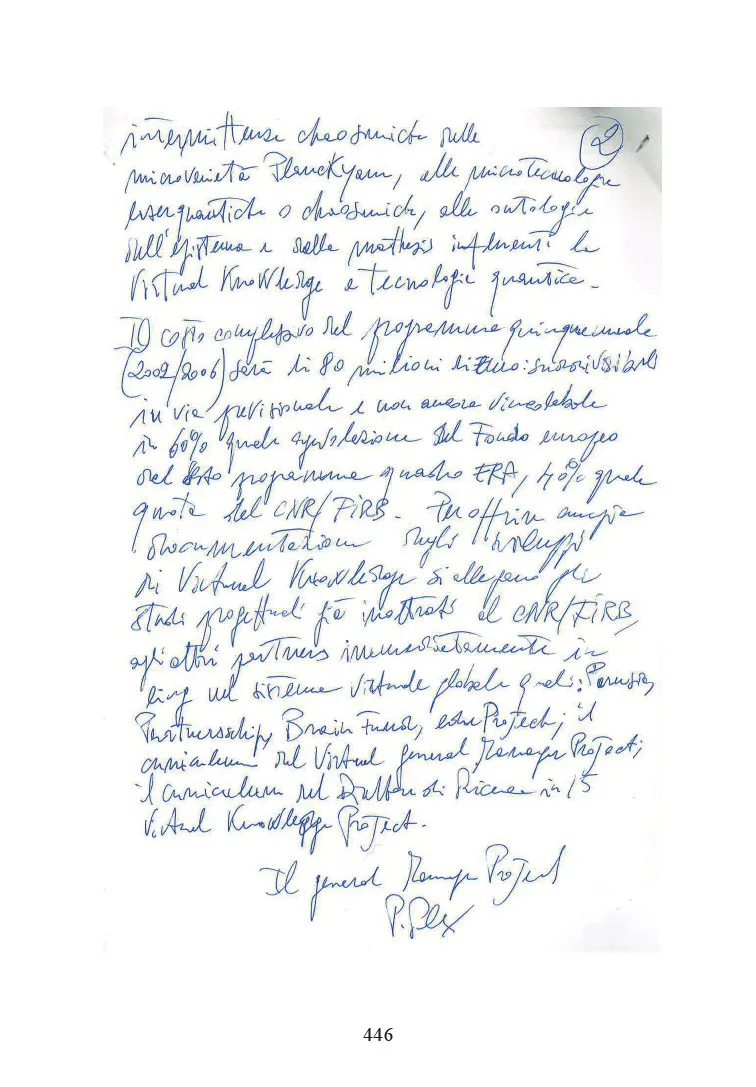 intermittenze chaosmiche sulle
2
microvarietà Planckyane, alle microtecnologie
laserquantiche o chaosmiche, alle ontologie
dell'epistema e della mathesis influenti la
Virtual Knowledge e tecnologie quantice.
Il costo complessivo del programma quinquennale
(2002/2006) sarà di 80 milioni di Euro: suddivisibili
in via previsionale e non ancora vincolabile
in 60% quale del Fondo europeo
del programma quadro ERA, 40% quale
quota del CNR/FIRB. Per offrire ampia
documentazione sugli sviluppi
di Virtual Knowledge si allegano gli
studi progettuali già inoltrati al CNR/FIRB,
agli altri partners immediatamente in
nel sistema virtuale globale quali: Perugia,
Partnerschip, Brain Fund, Project; il
curriculum del Virtual general Manager Project;
il curriculum del di Ricerca in 15
Virtual Knowledge Project.
Il general Manager Project
446